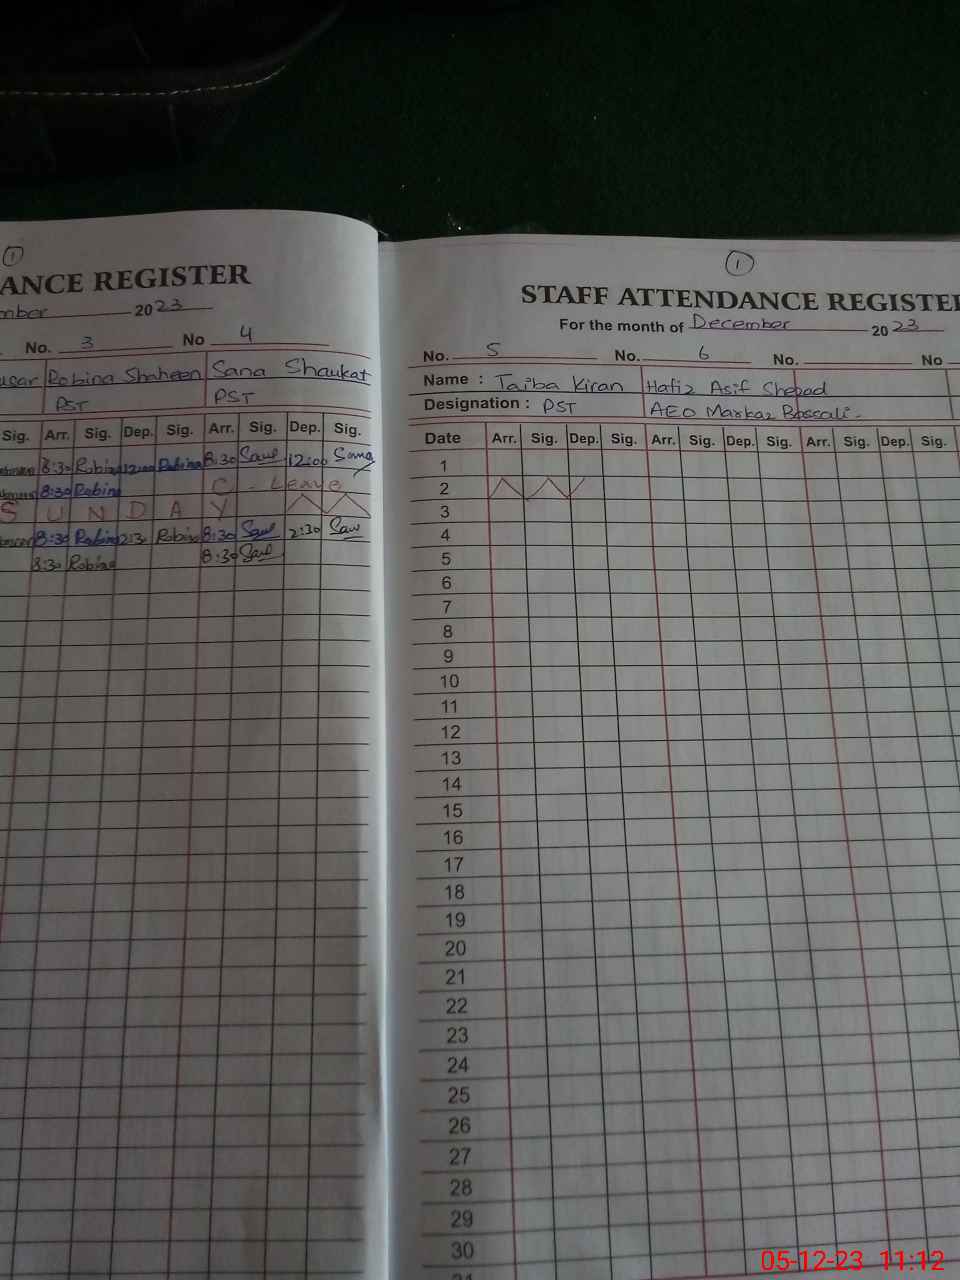 1
ANCE REGISTER
mber 2023
No. 3 No 4
usar Robina Shaheen Sana Shaukat
PST PST
Sig. Arr. Sig. Dep. Sig. Arr. Sig. Dep. Sig.
8:30 Robina 12:00 Robina 8:30 12:00 Sana
8:30 Robina C. Leave
S U N D A Y
8:30 Robina 2:30 Robina 8:30 2:30
8:30 Robina 8:30
1
STAFF ATTENDANCE REGISTE
For the month of December 2023
No. 5 No. 6 No. No
Name : Taiba Kiran Hafiz Asif
Designation : PST AEO Markaz
Date Arr. Sig. Dep. Sig. Arr. Sig. Dep. Sig. Arr. Sig. Dep. Sig.
1
2
3
4
5
6
7
8
9
10
11
12
13
14
15
16
17
18
19
20
21
22
23
24
25
26
27
28
29
30
31
05-12-23 11:12